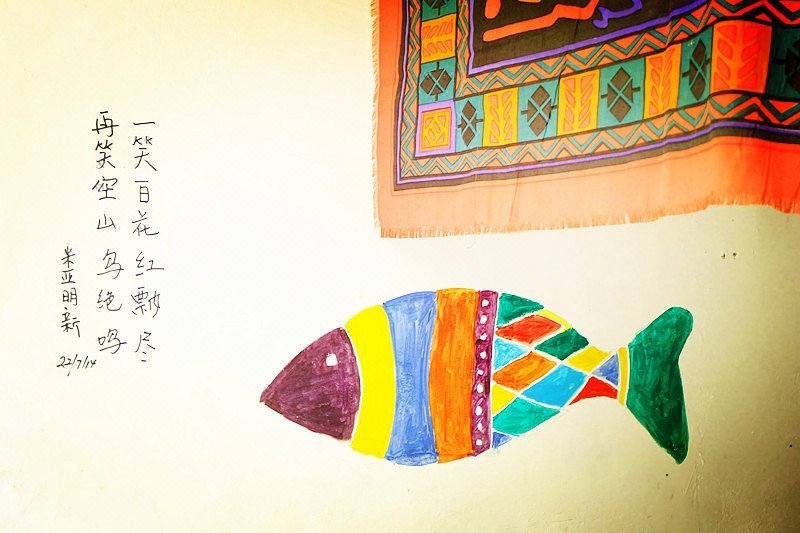 一笑百花红飘尽
再笑空山鸟绝鸣
米亚明新
22/7/14